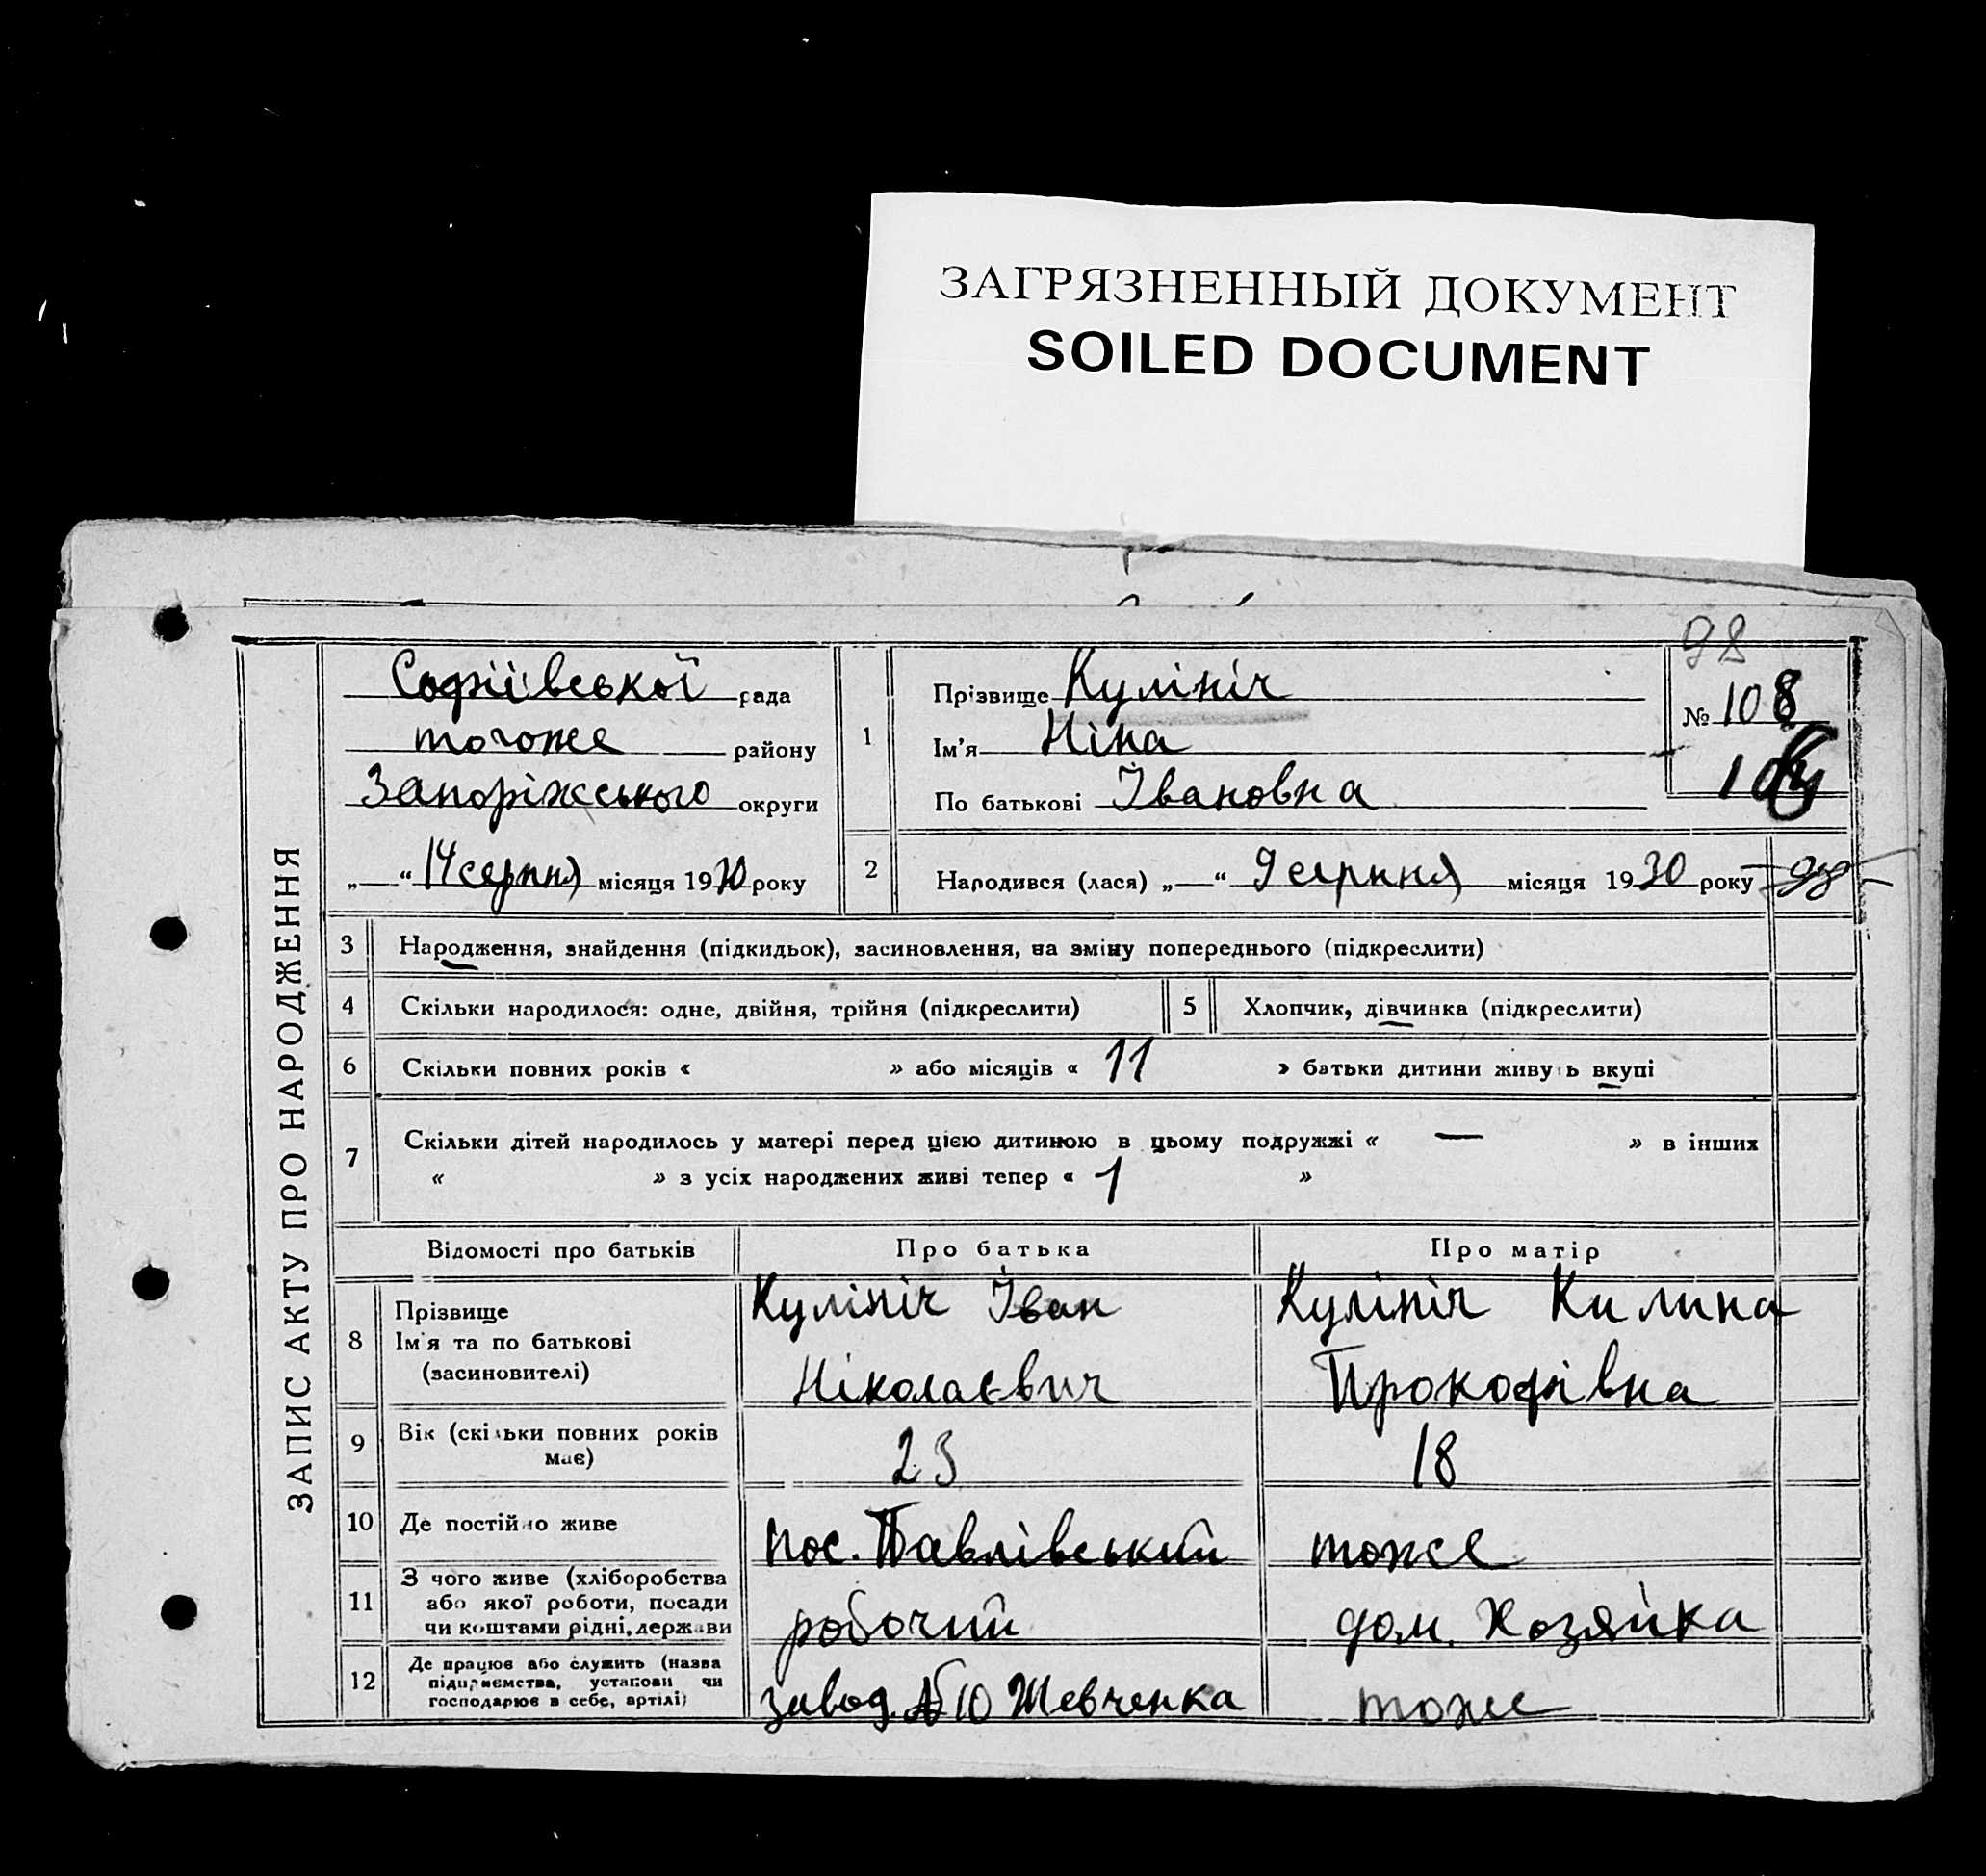 ЗАГРЯЗНЕННЫЙ ДОКУМЕНТ
SOILED DOCUMENT
98
ЗАПИС АКТУ ПРО НАРОДЖЕННЯ
Софіївської рада
тогоже району
Запоріжського округи
„—“ 14 серпня місяця 1930 року
1
Прізвище Кулініч
Ім'я Ніна
По батькові Івановна
№ 108
2 Народився (лася) „—“ 9 серпня місяця 1930 року 98
3 Народження, знайдення (підкидьок), засиновлення, на зміну попереднього (підкреслити)
4 Скільки народилося: одне, двійня, трійня (підкреслити) 5 Хлопчик, дівчинка (підкреслити)
6 Скільки повних років « » або місяців « 11 » батьки дитини живуть вкупі
7 Скільки дітей народилось у матері перед цією дитиною в цьому подружжі « — » в інших
« » з усіх народжених живі тепер « 1 »
Відомості про батьків Про батька Про матір
8 Прізвище
Ім'я та по батькові
(засиновителі)
Кулініч Іван
Ніколаєвич
Кулініч Килина
Прокофівна
9 Вік (скільки повних років
має)
23
18
10 Де постійно живе пос. Павлівський тоже
11 З чого живе (хліборобства
або якої роботи, посади
чи коштами рідні, держави
робочий
дом. Хозяйка
12 Де працює або служить (назва
підприємства, установи чи
господарює в себе, артілі)
завод № 10 Шевченка
тоже